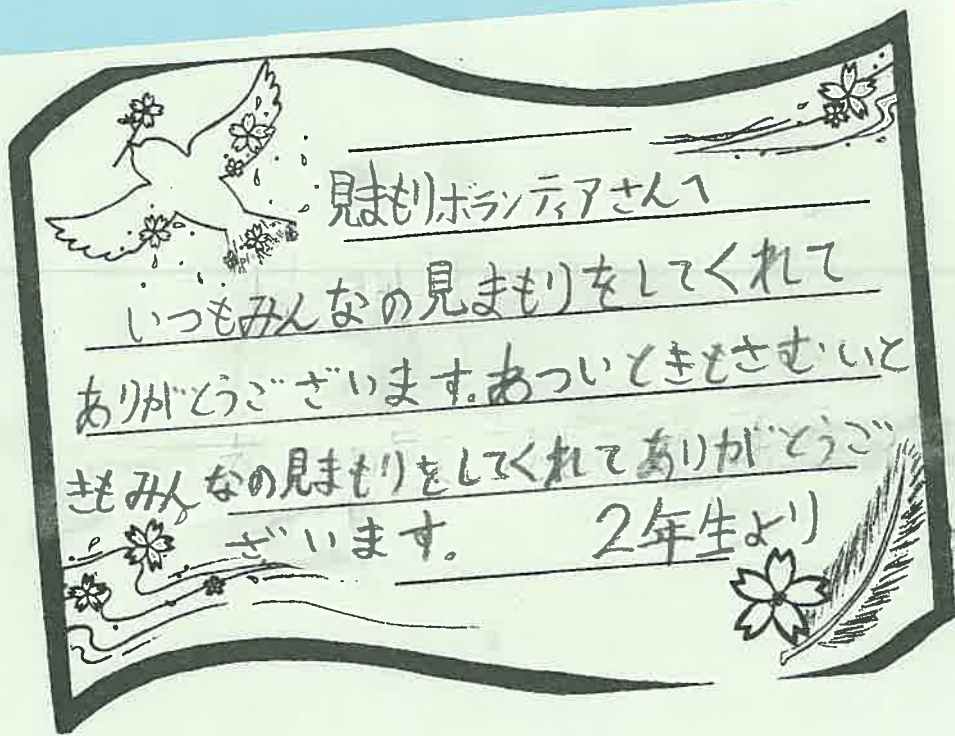 見まもりボランティアさんへ
いつもみんなの見まもりをしてくれて
ありがとうございます。あついときもさむいと
きもみんなの見まもりをしてくれてありがとうご
ざいます。 2年生より